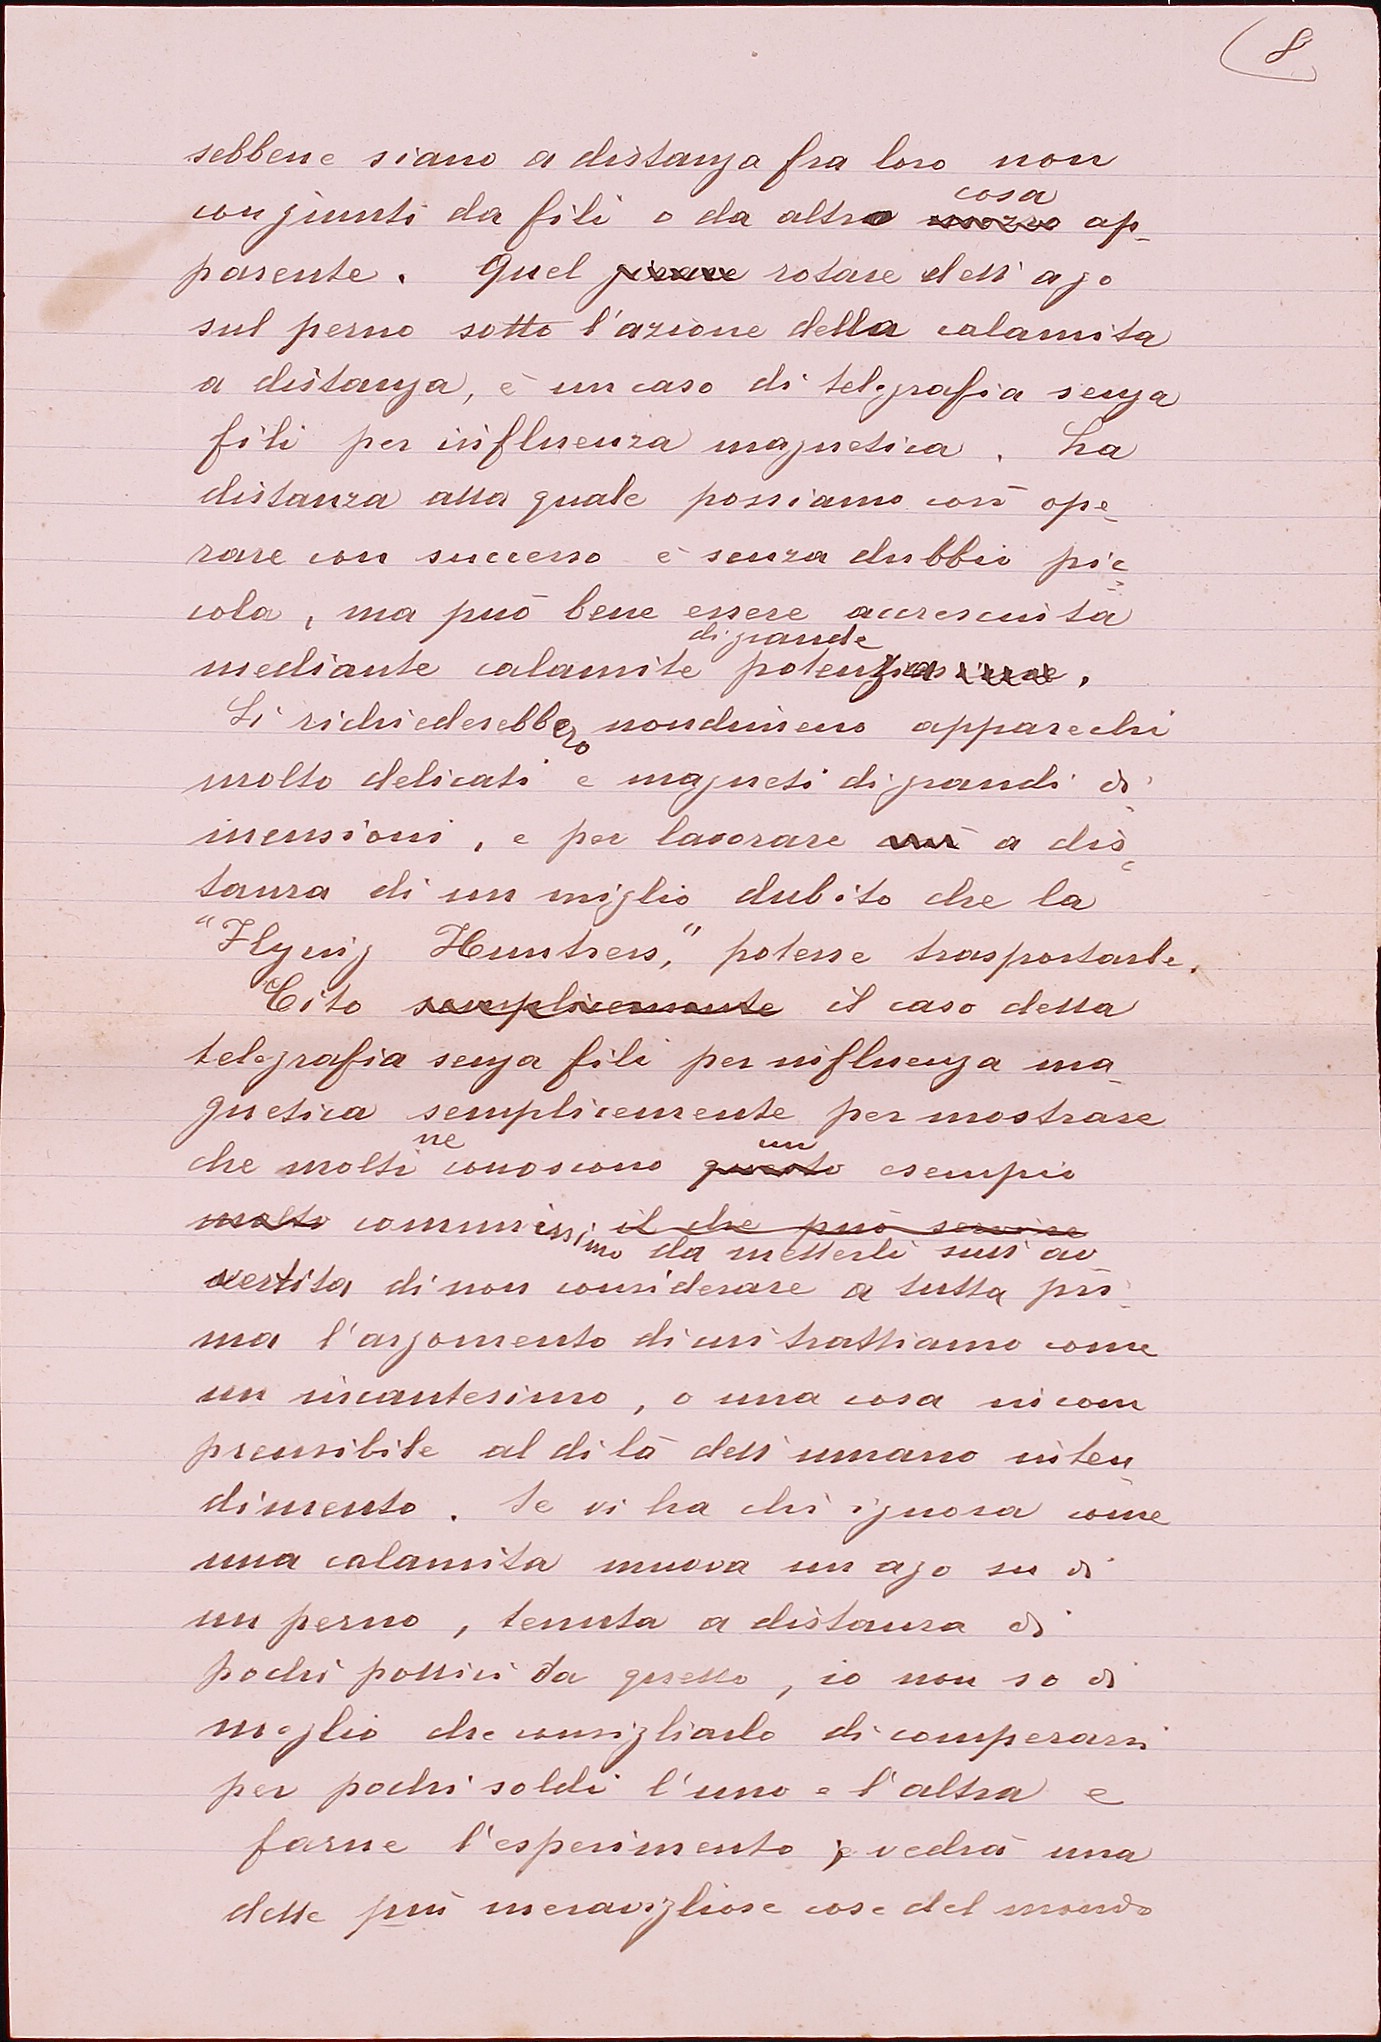 8
sebbene siano a distanza fra loro non
congiunti da fili o da altro cosa ap-
parente. Quel girare rotare dell'ago
sul perno sotto l'azione della calamita
a distanza, è un caso di telegrafia senza
fili per influenza magnetica. La
distanza alla quale possiamo così ope-
rare con successo è senza dubbio pic-
cola, ma può bene essere accresciuta
di grande
mediante calamite potenza.
Si richiederebbero nondimeno apparechi
molto delicati e magneti di grandi di-
mensioni, e per lavorare a dis-
tanza di un miglio dubito che la
"Flying Huntress," potesse trasportarle.
Cito semplicemente il caso della
telegrafia senza fili per influenza ma-
gnetica semplicemente per mostrare
che molti ne conoscono questo un esempio
molto comunissimo il che può servire
da metterli sull'av
vertita di non considerare a tutta pri-
ma l'argomento di cui trattiamo come
un incantesimo, o una cosa incom
prensibile al di là dell'umano inten-
dimento. Se vi ha chi ignora come
una calamita muova un ago su di
un perno, tenuta a distanza di
pochi pollici da quello, io non so di
meglio che consigliarlo di comperarsi
per pochi soldi l'uno e l'altra e
farne l'esperimento e vedrà una
delle più meravigliose cose del mondo